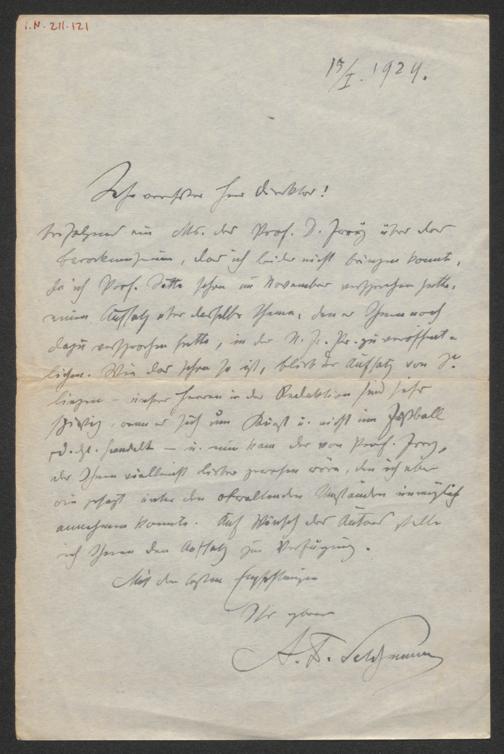 I.N. 211.121
13/I. 1924.
Sehr verehrter Herr Direktor!
beifolgend ein Ms. des Prof. D. Frey über das
Barockmuseum, das ich leider nicht bringen konnte,
da ich Prof. Tietze schon im November versprochen hatte,
einen Aufsatz über dasselbe Thema, den er Ihnen noch
dazu versprochen hatte, in der N. Fr. Pr. zu veröffent-
lichen. Wie das schon so ist, blieb der Aufsatz von T.
liegen – unsere Herren in der Redaktion sind sehr
wenn er sich um Kunst u. nicht um Fußball
handelt – u. nun kam der von Prof. Frey,
der Ihnen vielleicht lieber gewesen wäre, den ich aber
wie gesagt unter den obwaltenden Umständen unmöglich
annehmen konnte. Auf Wunsch des Autors stelle
ich Ihnen den Aufsatz zur Verfügung.
Mit den besten Empfehlungen
Ihr ergebener
A. F. Seligmann